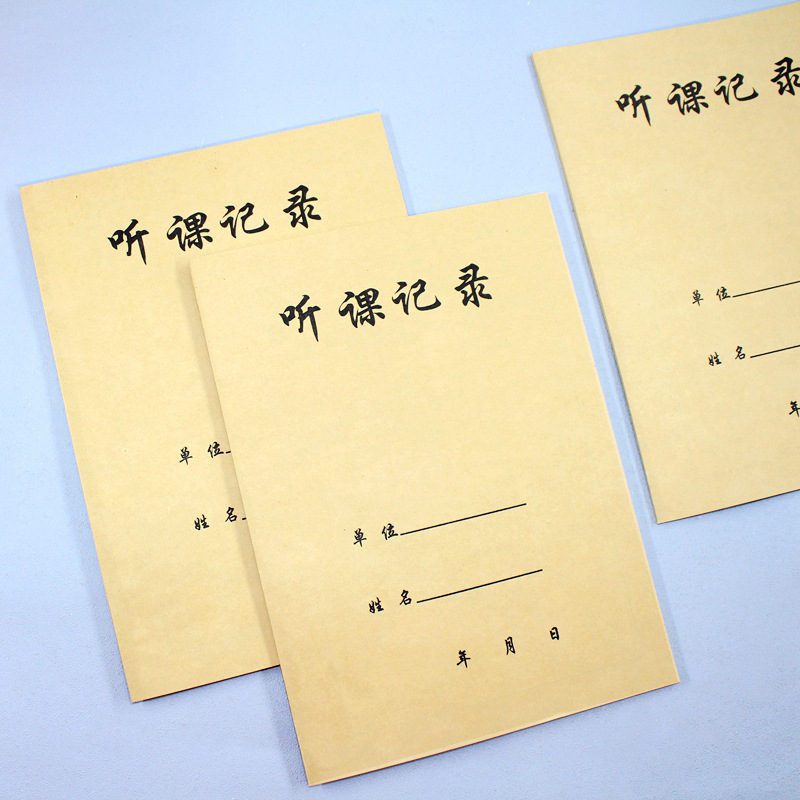 听课记录
单位
姓名
听课记录
单位
姓名
年月日
听课记录
单位
姓名
年